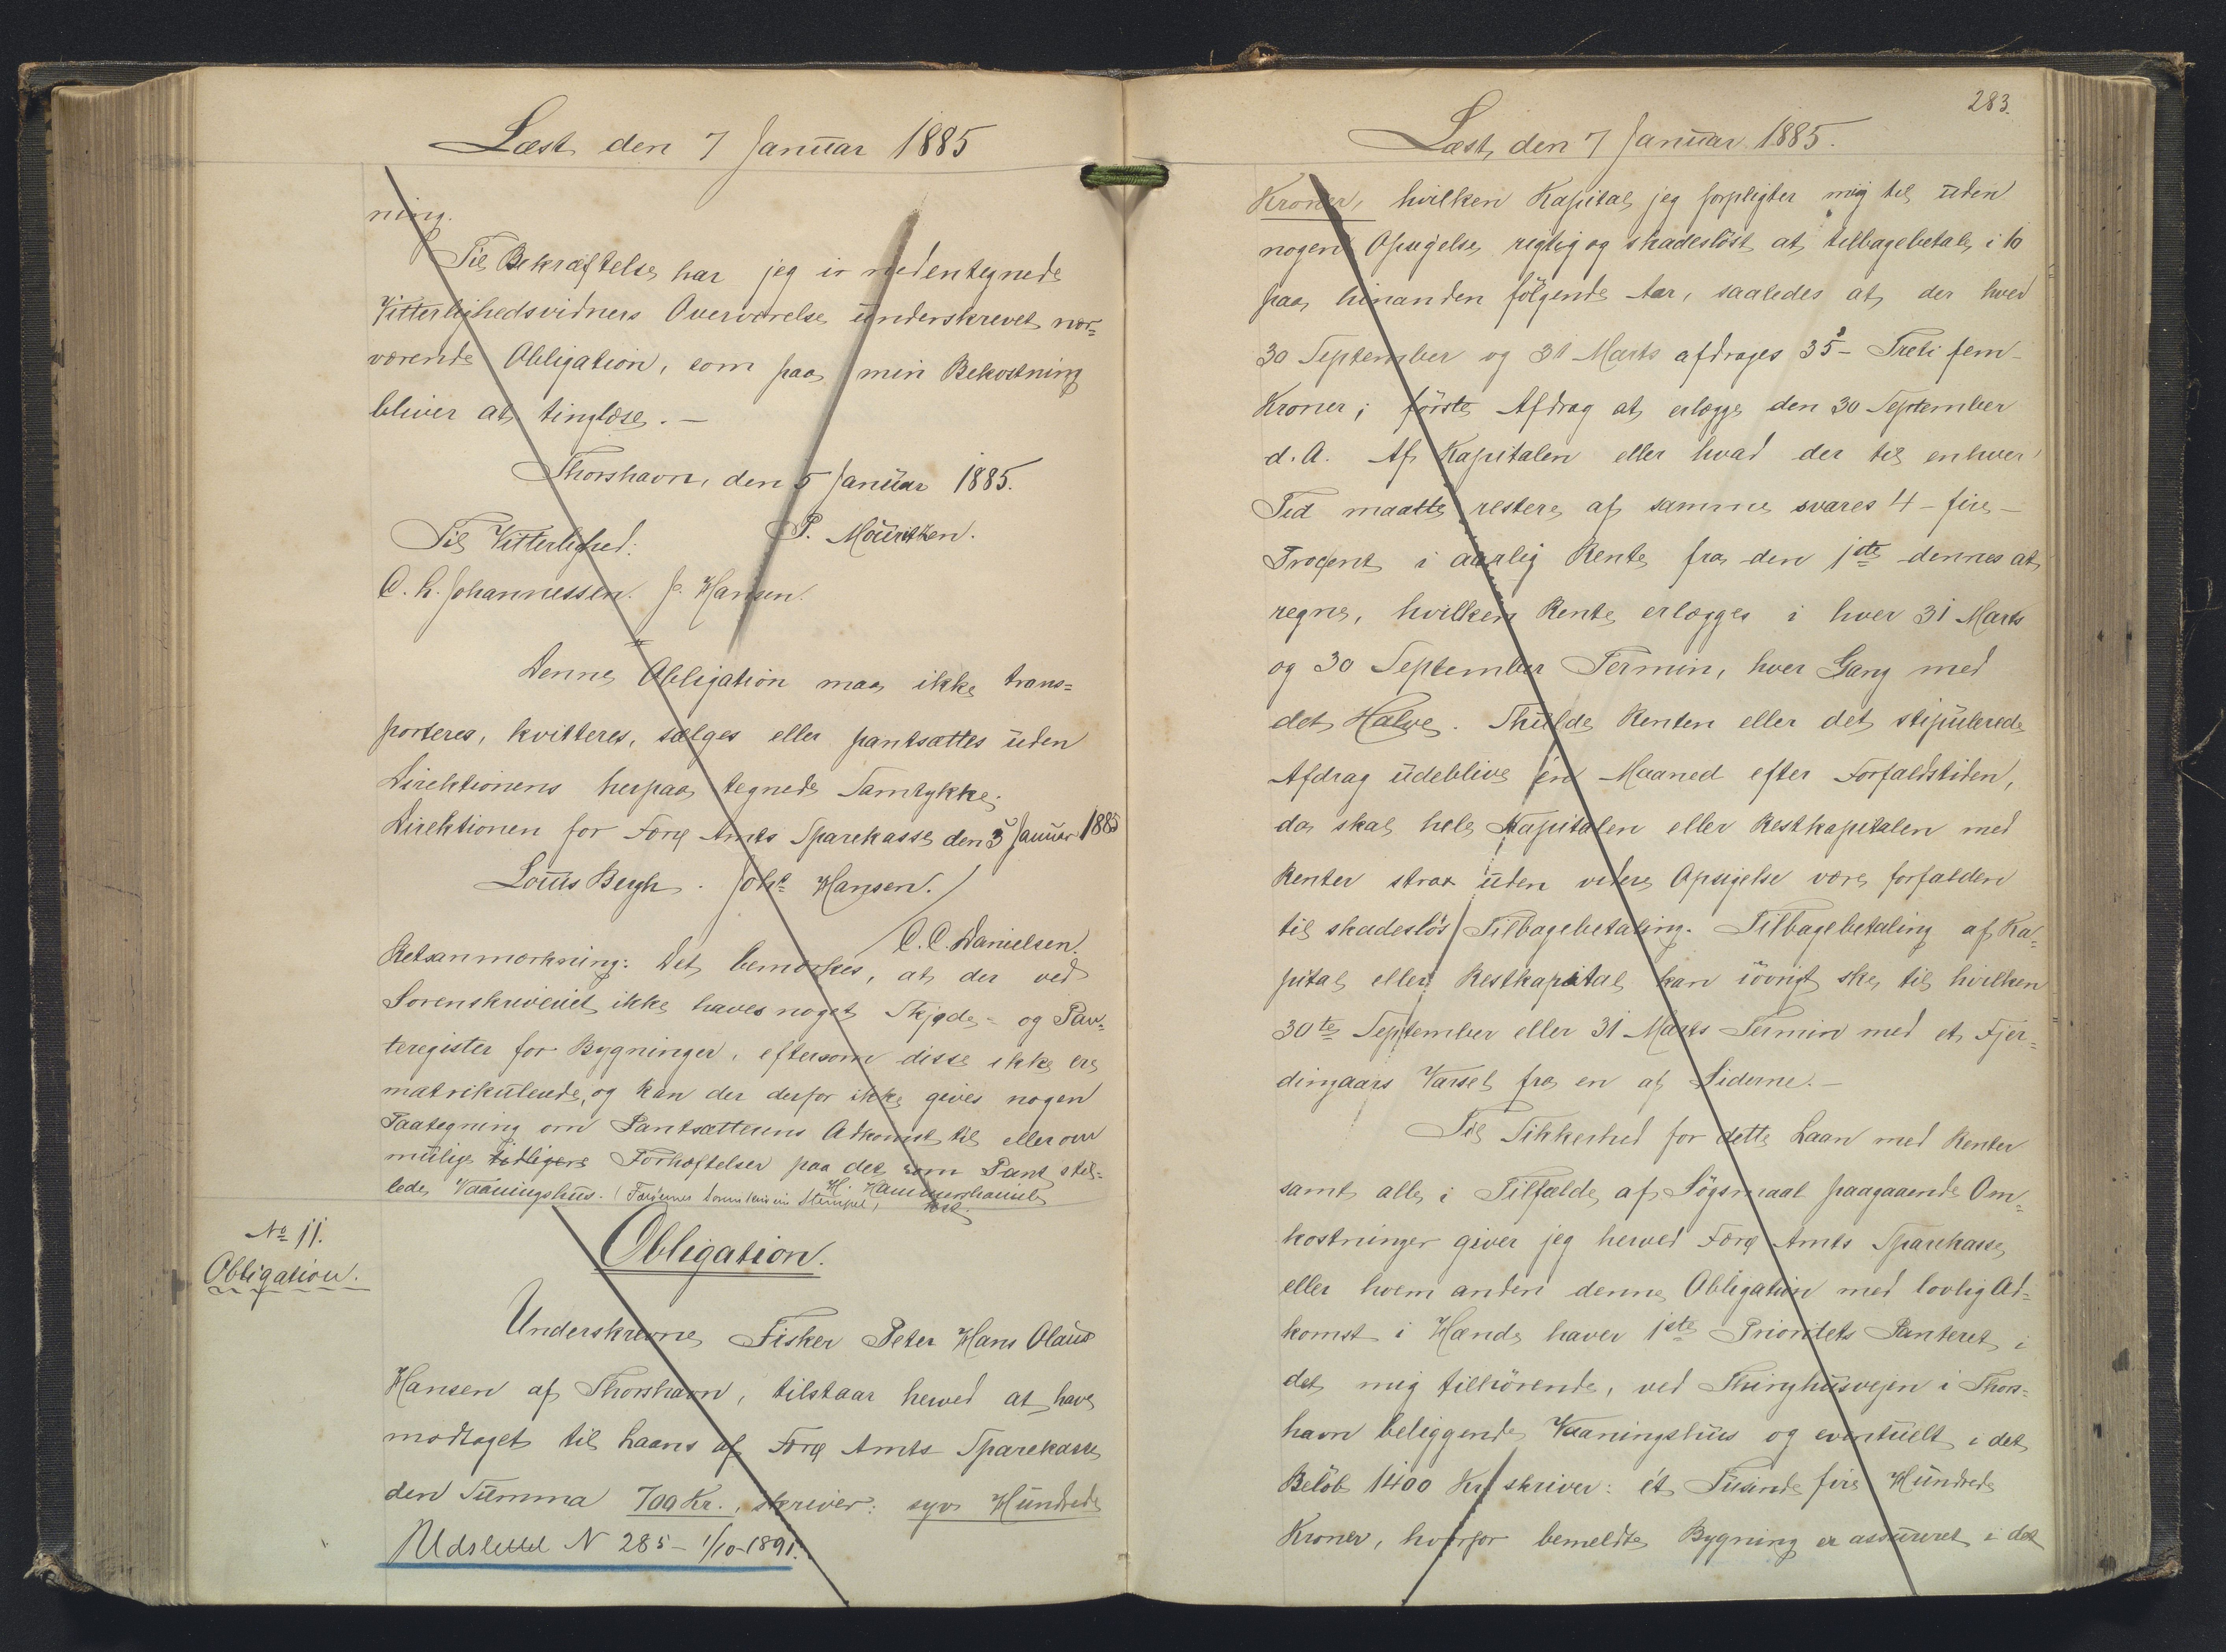 Læst den 7 Januar 1885
ning.
Til Bekræftelse har jeg i nedentegnede
Vitterlighedsvidners Overværelse underskrevet nær=
værende Obligation, som paa min Bekostning
bliver at tinglæse. —
Thorshavn, den 5 Januar 1885.
Til Vitterlighed: P. Mouritzen.
C. h. Johannessen. J. Hansen.
Denne Obligation maa ikke trans=
porteres, kvitteres, sælges eller pantsættes uden
Direktionens herpaa tegnede Samtykke.
Direktionen for Færø Amts Sparekasse den 3 Januar 1885
Louis Bergh. Johs Hansen.
C. C. Danielsen.
Retsanmærkning: Det bemærkes, at der ved
Sorenskriveriet ikke haves noget Skjøde- og Pan=
teregister for Bygninger, eftersom disse ikke ere
matrikulerede, og kan der derfor ikke gives nogen
Paategning om Pantsætterens Adkomst til eller om
mulige tidligere Forhæftelser paa det som Pant stil=
lede Vaaningshus. (Færøernes Sorenskriveri Stempel) H. Hammershaimb
kst.
No 11.
Obligation.
Obligation.
Underskrevne Fisker Peter Hans Olaus
Hansen af Thorshavn, tilstaar herved at have
modtaget til Laans af Færø Amts Sparekasse
den Summa 700 Kr., skriver: syv Hundrede
Udslettet N 285 - 1/10-1891.
283.
Læst den 7 Januar 1885.
Kroner, hvilken Kapital jeg forpligter mig til uden
nogen Opsigelse rigtig og skadesløst at tilbagebetale i 10
paa hinanden følgende Aar, saaledes at der hver
30 September og 31 Marts afdrages 35 - Treti fem -
Kroner; første Afdrag at erlægge den 30 September
d. A. Af Kapitalen eller hvad der til enhver
Tid maatte restere af samme svares 4 - fire -
Procent i aarlig Rente fra den 1ste dennes at
regne, hvilken Rente erlægges i hver 31 Marts
og 30 September Termin, hver Gang med
det Halve. Skulde Renten eller det stipulerede
Afdrag udeblive én Maaned efter Forfaldstiden,
da skal hele Kapitalen eller Restkapitalen med
Renter strax uden videre Opsigelse være forfalden
til skadesløs Tilbagebetaling. Tilbagebetaling af Ka=
pital eller Restkapital kan iøvrigt ske til hvilken
30te September eller 31 Marts Termin med et Fjer=
dingaars Varsel fra en af Siderne. —
Til Sikkerhed for dette Laan med Renter
samt alle i Tilfælde af Søgsmaal paagaaende Om=
kostninger giver jeg herved Færø Amts Sparekasse
eller hvem anden denne Obligation med lovlig Ad=
komst i Hænde haver 1ste Prioritets Panteret i
det mig tilhørende, ved Thinghusvejen i Thors=
havn beliggende Vaaningshus og eventuelt i det
Beløb 1400 Kr. skriver: ét Tusinde fire Hundrede
Kroner, hvorfor bemeldte Bygning er assureret i det